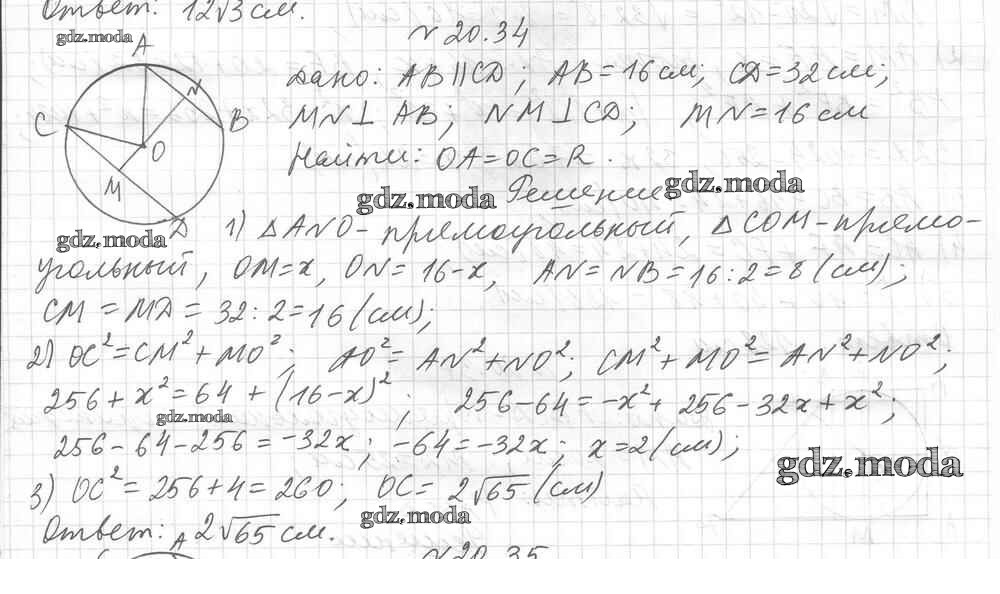 Ответ: 12√3 см.
gdz.moda
N 20.34
A
N
C
B
O
M
D
Дано: AB∥CD; AB=16 см; CD=32 см;
MN⊥AB; NM⊥CD; MN=16 см
Найти: OA=OC=R.
gdz.moda
Решение
gdz.moda
gdz.moda
1) △ANO - прямоугольный, △COM - прямо-
угольный, OM=x, ON=16-x, AN=NB=16:2=8 (см);
CM=MD=32:2=16 (см);
2) OC²=CM²+MO²; AO²=AN²+NO²; CM²+MO²=AN²+NO²;
256+x²=64+(16-x)²; 256-64=-x²+256-32x+x²;
gdz.moda
256-64-256=-32x; -64=-32x; x=2 (см);
gdz.moda
3) OC²=256+4=260; OC=2√65 (см)
gdz.moda
Ответ: 2√65 см.
A
N 20.35